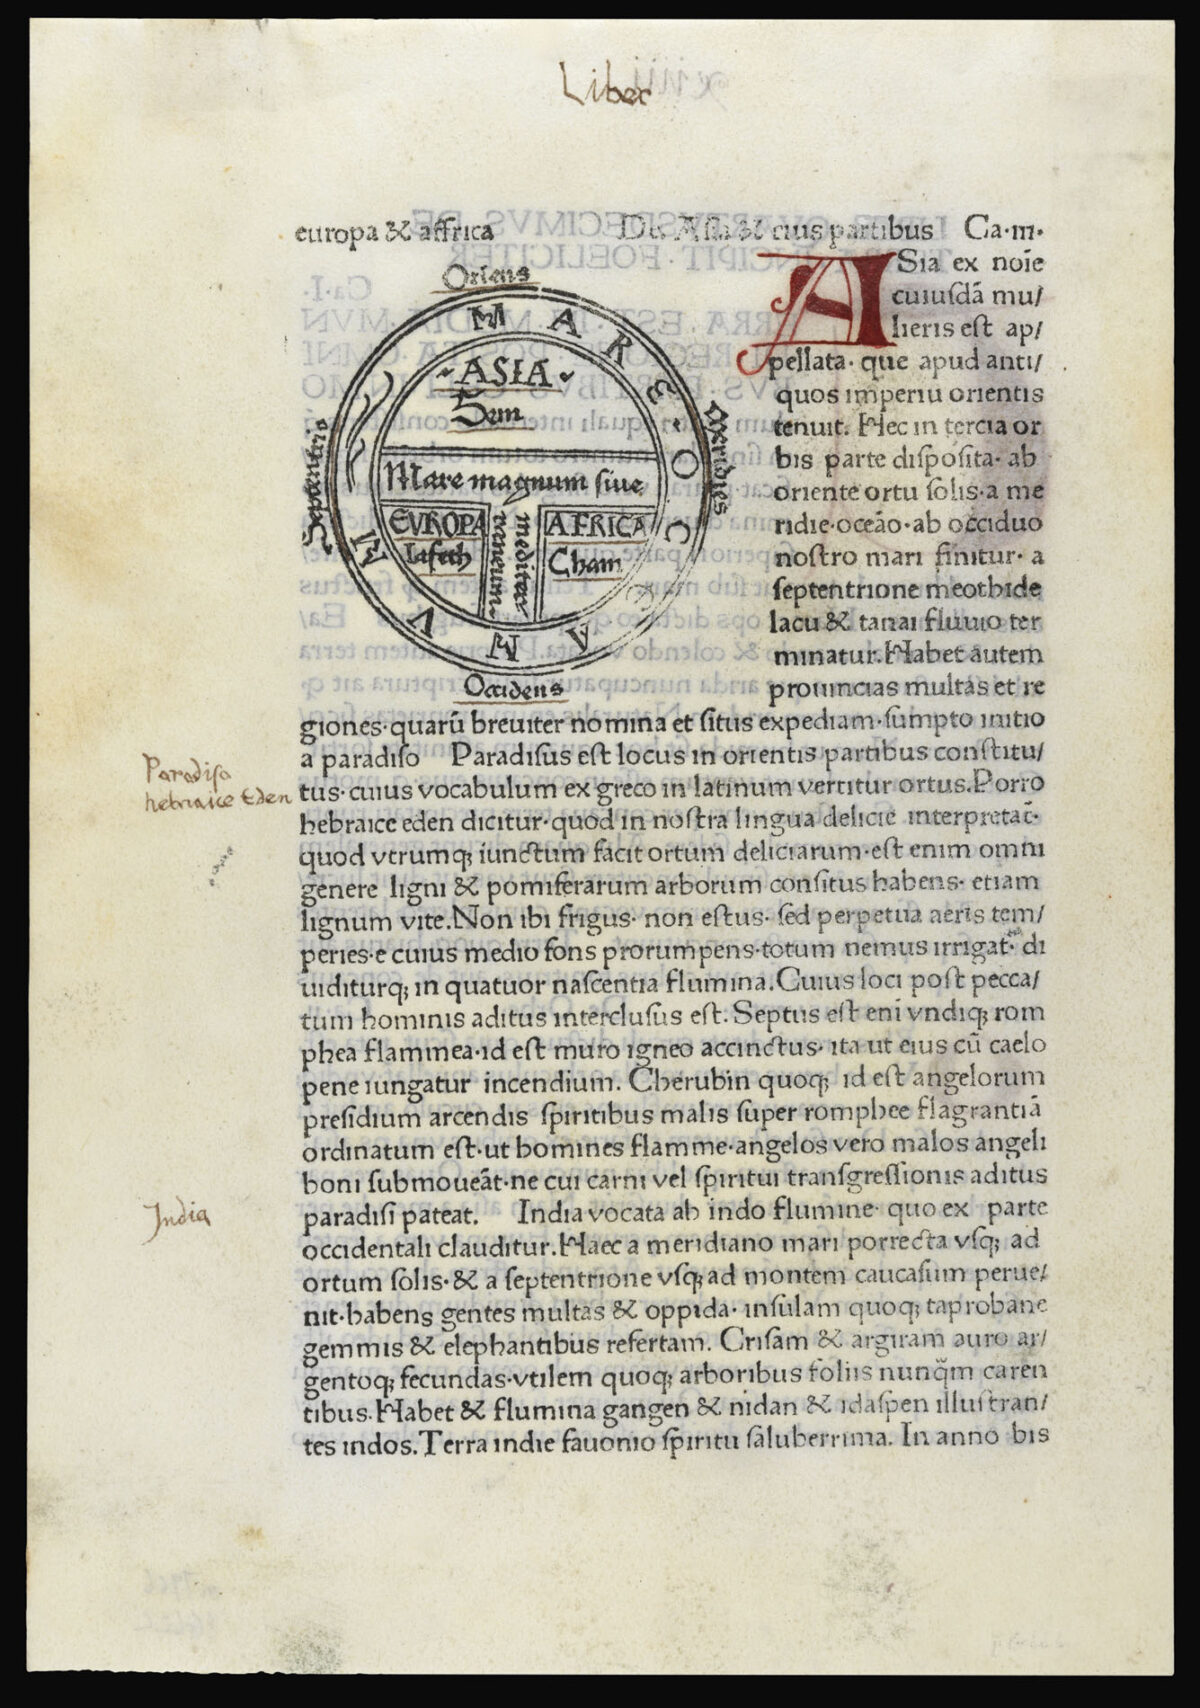 Liber
europa & affrica De Asia & eius partibus Ca.III.
Oriens
MARE OCEANVM
Septentrio
Meridies
ASIA
Sem
Mare magnum siue
mediterraneum
EVROPA
Iafeth
AFRICA
Cham
Occidens
ASia ex noīe
cuiusdā mu/
lieris est ap/
pellata· que apud anti/
quos imperiu orientis
tenuit. Hec in tercia or
bis parte disposita· ab
oriente ortu solis·a me
ridie·oceāo·ab occiduo
nostro mari finitur· a
septentrione meothide
lacu & tanai fluuio ter
minatur.Habet autem
prouincias multas et re
giones·quarū breuiter nomina et situs expediam·sumpto initio
a paradiso Paradisus est locus in orientis partibus constitu/
Paradiso
hebraice Eden
tus·cuius vocabulum ex greco in latinum vertitur ortus.Porro
hebraice eden dicitur·quod in nostra lingua delicie interpretat̄·
quod vtrumq; iunctum facit ortum deliciarum·est enim omni
genere ligni & pomiferarum arborum consitus habens· etiam
lignum vite.Non ibi frigus· non estus· sed perpetua aeris tem/
peries·e cuius medio fons prorumpens·totum nemus irrigat· di
uiditurq; in quatuor nascentia flumina.Cuius loci post pecca/
tum hominis aditus interclusus est. Septus est enī vndiq; rom
phea flammea·id est muro igneo accinctus· ita ut eius cū caelo
pene iungatur incendium. Cherubin quoq; id est angelorum
presidium arcendis spiritibus malis super romphee flagrantiā
ordinatum est·ut homines flamme·angelos vero malos angeli
boni submoueāt·ne cui carni vel spiritui transgressionis aditus
India
paradisi pateat. India vocata ab indo flumine· quo ex parte
occidentali clauditur.Haec a meridiano mari porrecta vsq; ad
ortum solis·& a septentrione vsq; ad montem caucasum perue/
nit·habens gentes multas & oppida· insulam quoq; taprobane
gemmis & elephantibus refertam. Crisam & argiram auro ar/
gentoq; fecundas·vtilem quoq; arboribus foliis nunq̄m caren
tibus.Habet & flumina gangen & nidan & idaspen illustran/
tes indos.Terra indie fauonio spiritu saluberrima. In anno bis